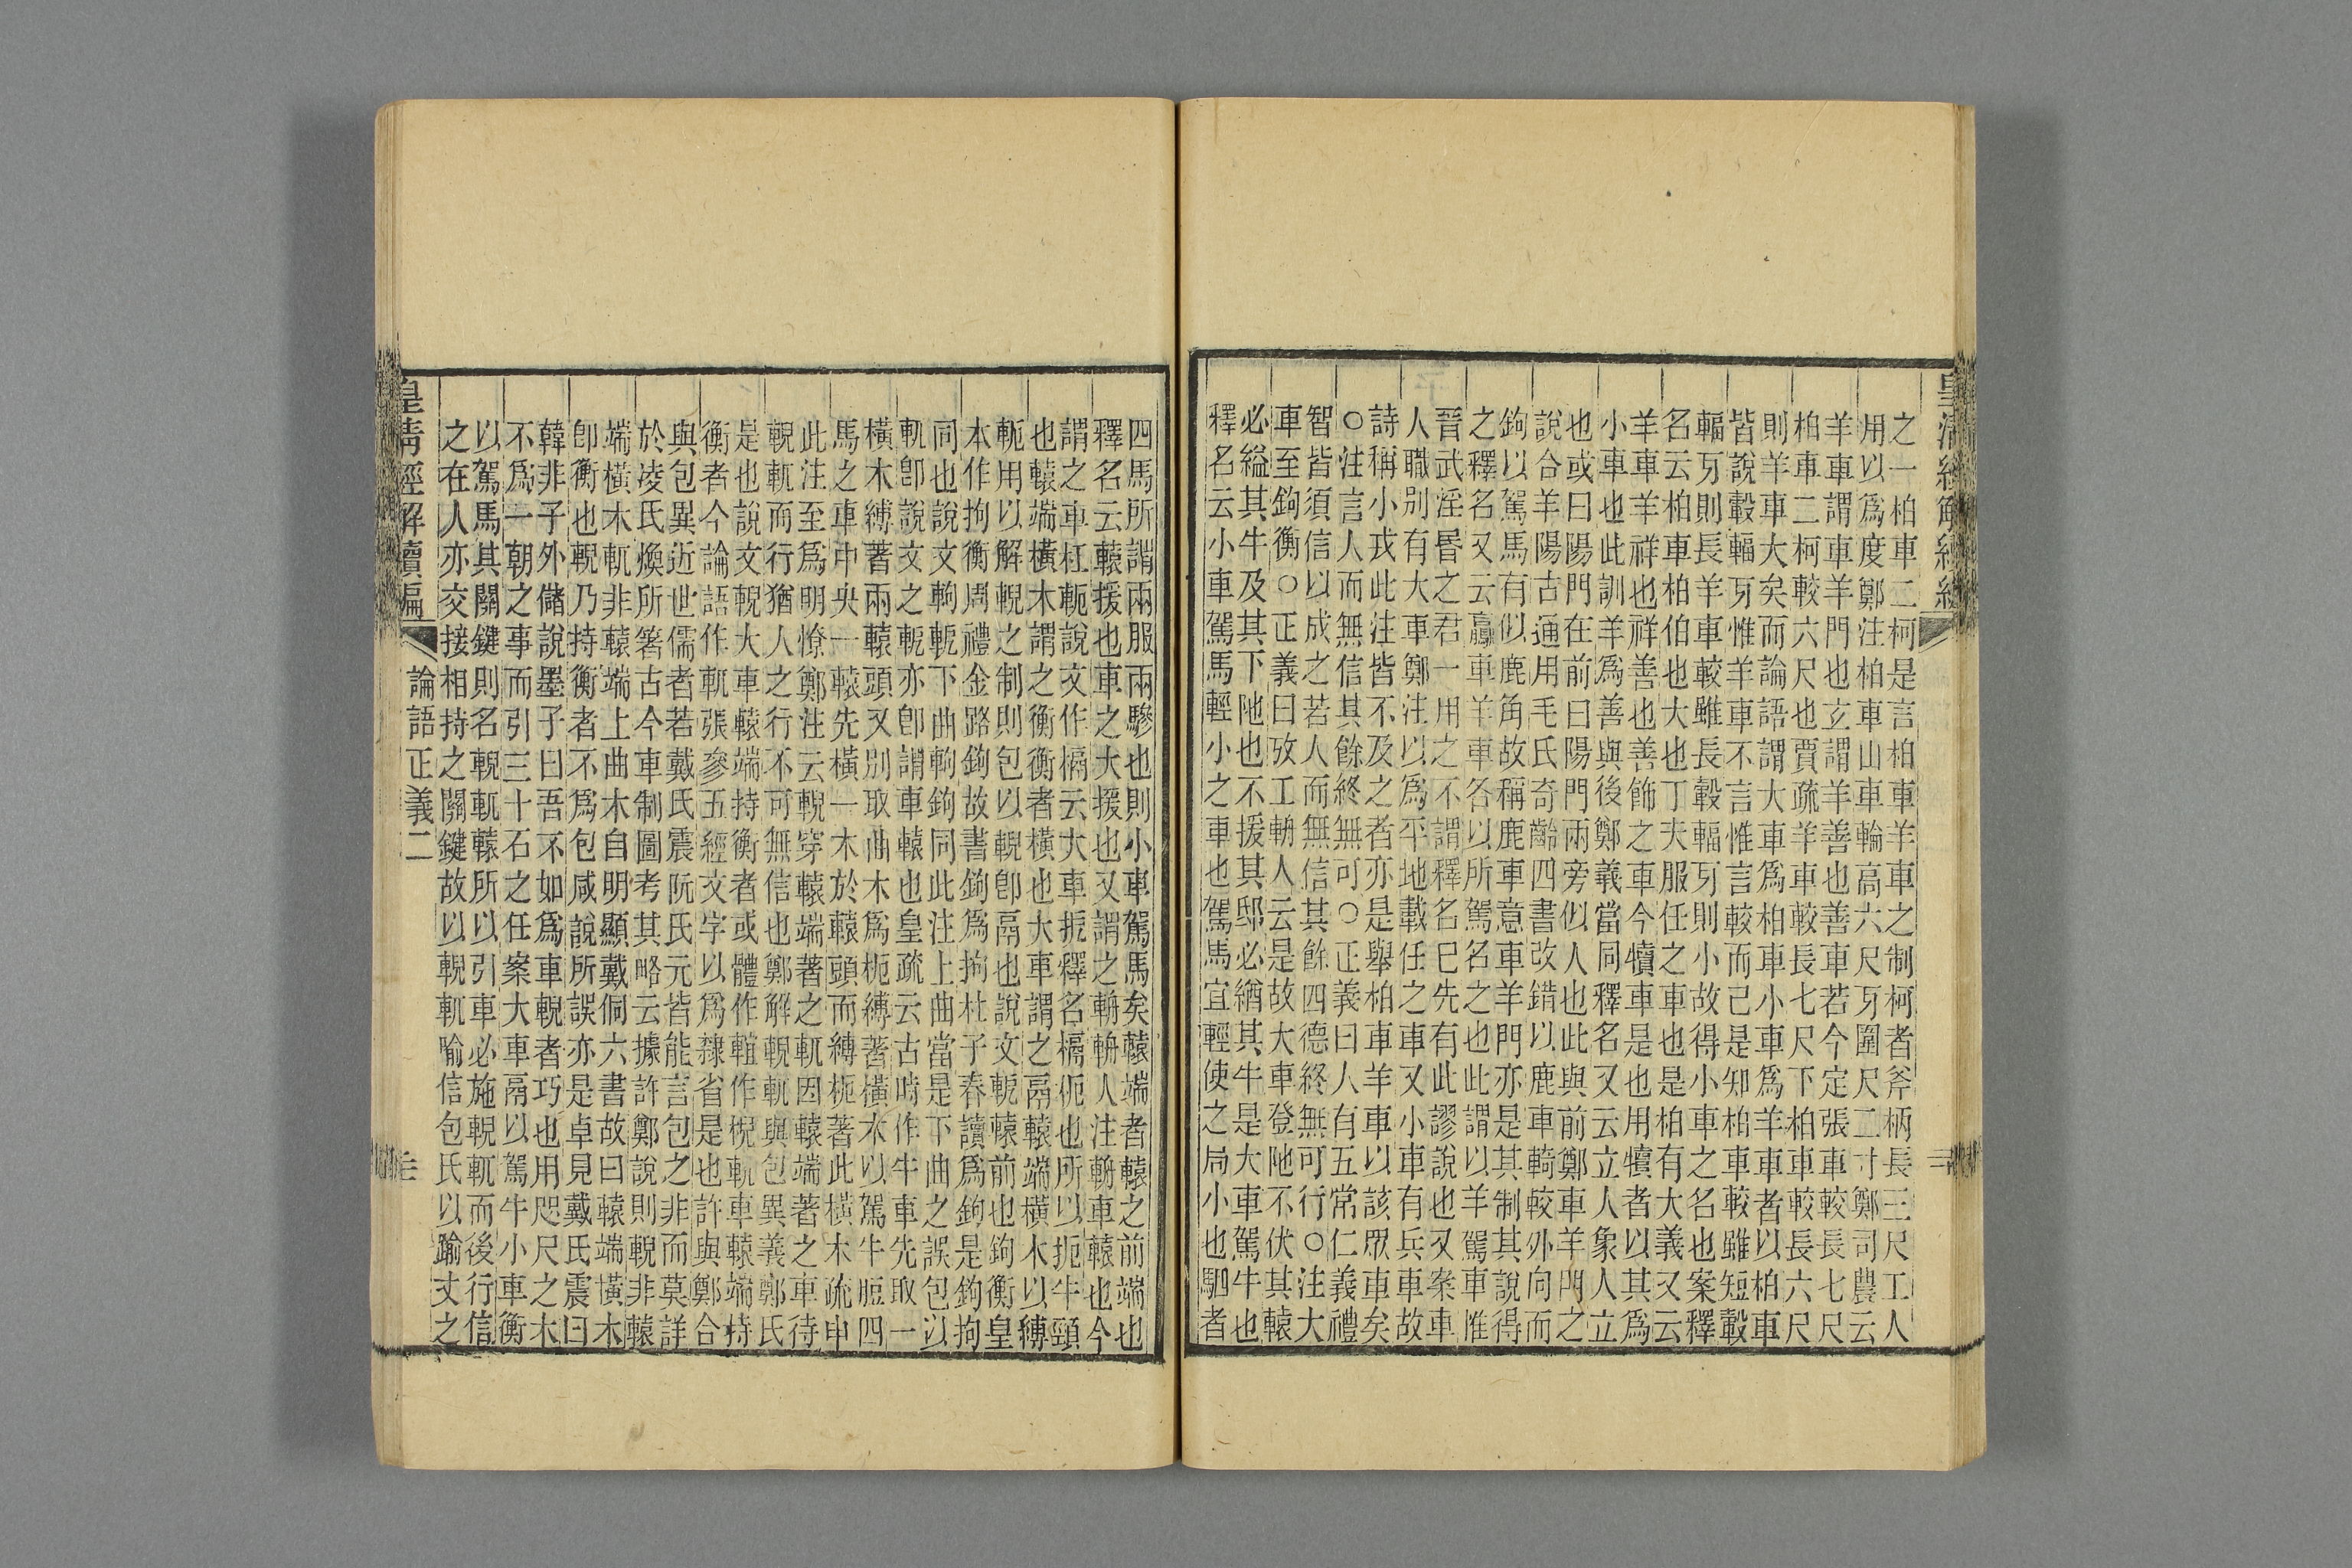 皇清經解續編
之一柏車二柯是言柏車羊車之制柯者斧柄長三尺工人
用以爲度鄭注柏車山車輪高六尺牙圍尺二寸鄭司農云
羊車謂車羊門也玄謂羊善也善車若今定張車較長七尺
柏車二柯較六尺也賈疏羊車較長七尺下柏車較長六尺
則羊車大矣而論語謂大車爲柏車小車爲羊車者以柏車
皆說轂輻牙惟羊車不言惟言較而已是知柏車較雖短轂
輻牙則長羊車較雖長轂輻牙則小故得小車之名也案釋
名云柏車柏伯也大也丁夫服任之車也是柏有大義又云
羊車羊祥也祥善也善飾之車今犢車是也用犢者以其爲
小車也此訓羊爲善與後鄭義當同釋名又云立人象人立
也或曰陽門在前曰陽門兩旁似人也此與前鄭車羊門之
說合羊陽古通用毛氏奇齡四書改錯以鹿車輢較外向而
鉤以駕馬有似鹿角故稱鹿車意車羊門亦是其制其說得
之釋名又云羸車羊車各以所駕名之也此謂以羊駕車惟
晉武淫昬之君一用之不謂釋名已先有此謬說也又案車
人職別有大車鄭注以爲平地載任之車又小車有兵車故
詩稱小戎此注皆不及之者亦是舉柏車羊車以該眾車矣
○注言人而無信其餘終無可○正義曰人有五常仁義禮
智皆須信以成之若人而無信其餘四德終無可行○注大
車至鉤衡○正義曰攷工輈人云是故大車登阤不伏其轅
必縊其牛及其下阤也不援其邸必緧其牛是大車駕牛也
釋名云小車駕馬輕小之車也駕馬宜輕使之局小也駟者
四馬所謂兩服兩驂也則小車駕馬矣轅端者轅之前端也
釋名云轅援也車之大援也又謂之輈輈人注輈車轅也今
謂之車杠軛說文作槅云大車扼釋名槅扼也所以扼牛頸
也轅端橫木謂之衡衡者橫也大車謂之鬲轅端橫木以縛
軛用以解輗之制則包以輗卽鬲也說文軶轅前也鉤衡皇
本作拘衡周禮金路鉤故書鉤爲拘杜子春讀爲鉤是鉤拘
同也說文軥軶下曲軥鉤同此注上曲當是下曲之誤包以
軏卽說文之軶亦卽謂車轅也皇疏云古時作牛車先取一
橫木縛著兩轅頭又別取曲木爲枙縛著橫木以駕牛脰四
馬之車中央一轅先橫一木於轅頭而縛枙著此橫木疏申
此注至爲明憭鄭注云輗穿轅端著之軏因轅端著之車待
輗軏而行猶人之行不可無信也鄭解輗軏與包異義鄭氏
是也說文輗大車轅端持衡者或體作作棿軏車轅端持
衡者今論語作軏張參五經文字以爲隸省是也許與鄭合
與包異近世儒者若戴氏震阮氏元皆能言包之非而莫詳
於凌氏煥所箸古今車制圖考其略云據許鄭說則輗非轅
端橫木軏非轅端上曲木自明顯戴侗六書故曰轅端橫木
卽衡也輗乃持衡者不爲包咸說所誤亦是卓見戴氏震曰
韓非子外儲說墨子曰吾不如爲車輗者巧也用咫尺之木
不爲一朝之事而引三十石之任案大車鬲以駕牛小車衡
以駕馬其關鍵則名輗軏轅所以引車必施輗軏而後行信
之在人亦交接相持之關鍵故以輗軏喻信包氏以踰丈之
皇清經解續編 論語正義二